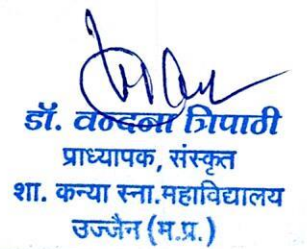 डॉ. वन्दना त्रिपाठी
प्राध्यापक, संस्कृत
शा. कन्या स्ना.महाविद्यालय
उज्जैन (म.प्र.)